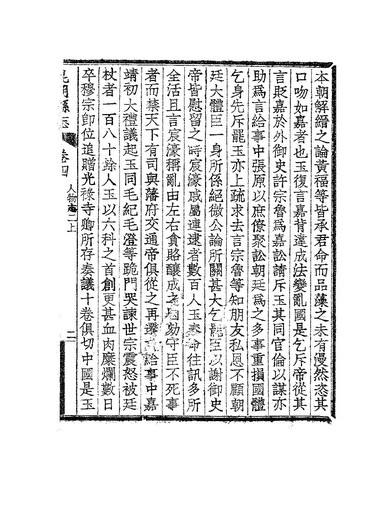 本朝解縉之論黃福等皆承君命而品藻之未有僈然恣其
口吻如嘉者也玉復言嘉背違成法變亂國是乞斥帝從其
言貶嘉於外御史許宗魯爲嘉訟請斥玉其同官倫以謀亦
助爲言給事中張原以庶僚聚訟朝廷爲之多事重損國體
乞身先斥罷玉亦上疏求去言宗魯等知朋友私恩不顧朝
廷大體臣一身所係絕微公論所關甚大乞罷臣以謝御史
帝皆慰留之時宸濠戚屬連逮者數百人玉奉命往訊多所
全活且言宸濠稱亂由左右貪賂釀成之因劾守臣不死事
者而禁天下有司與藩府交通帝俱從之再遷 給事中嘉
靖初大禮議起玉同毛紀毛澄等跪門哭諫世宗震怒被廷
杖者一百八十餘人玉以六科之首創更甚血肉糜爛數日
卒穆宗卽位追贈光祿寺卿所存奏議十卷俱切中國是玉
卷四
人物
上
二